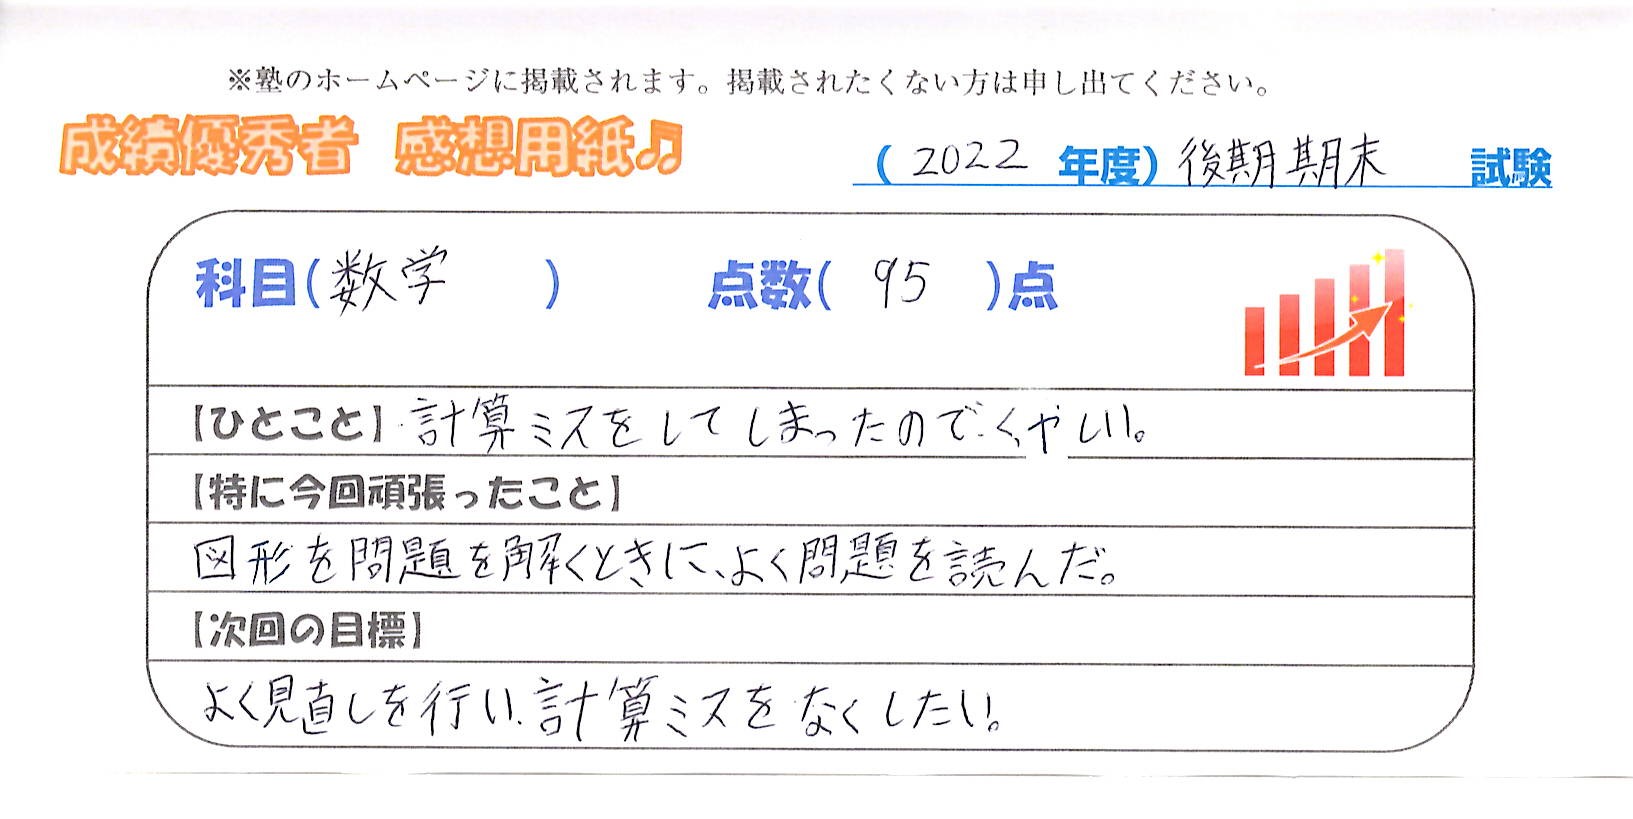 ※塾のホームページに掲載されます。掲載されたくない方は申し出てください。
成績優秀者 感想用紙♫
(2022 年度)後期期末 試験
科目(数学 ) 点数( 95 )点
【ひとこと】計算ミスをしてしまったので、くやしい。
【特に今回頑張ったこと】
図形を問題を解くときに、よく問題を読んだ。
【次回の目標】
よく見直しを行い、計算ミスをなくしたい。